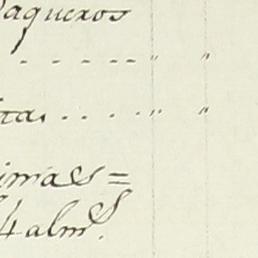 aqueros
. . . . . . " "
tas . . . . . " "
imas =
4 alm.s